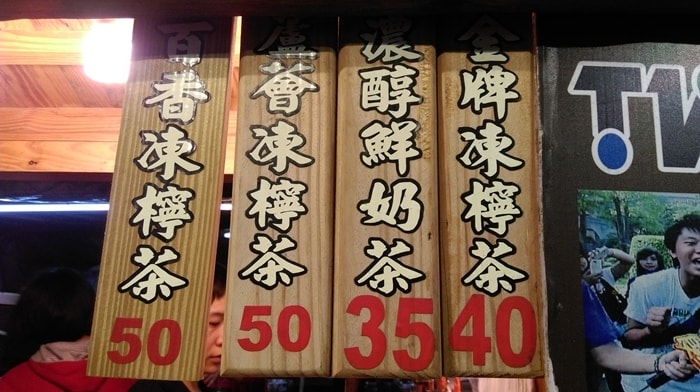 金牌凍檸茶
40
濃醇鮮奶茶
35
蘆薈凍檸茶
50
百香凍檸茶
50
TV